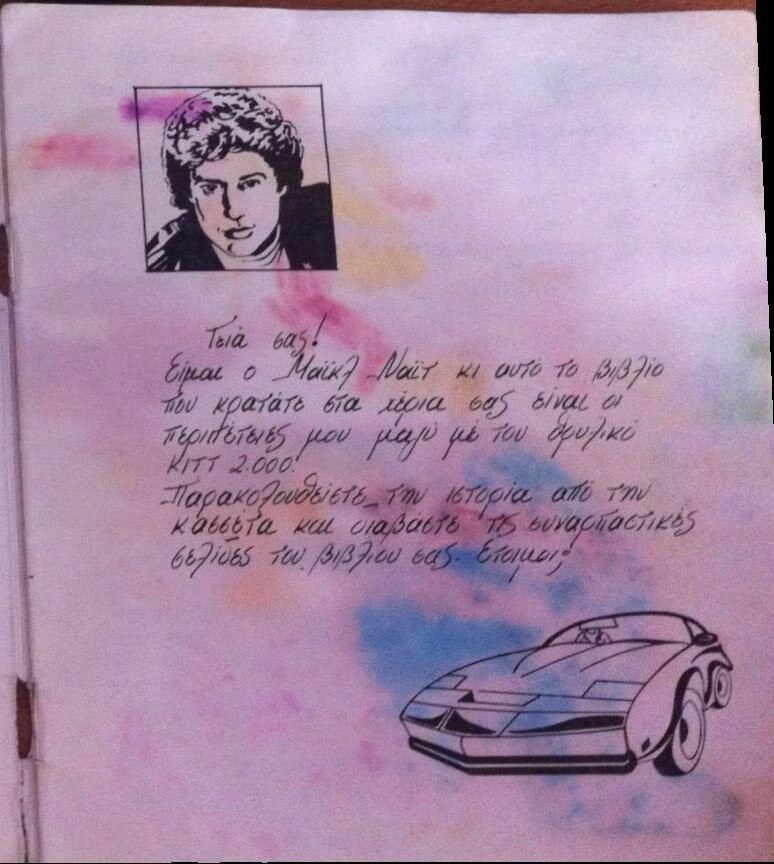 Γειά σας!
Είμαι ο Μάϊκλ Νάϊτ κι αυτό το βιβλίο
που κρατάτε στα χέρια σας είναι οι
περιπέτειες μου μαζύ με τον θρυλικό
KITT 2.000!
Παρακολουθείστε την ιστορία από την
κασσέτα και διαβάστε τις συναρπαστικές
σελίδες του βιβλίου σας. Έτοιμοι;